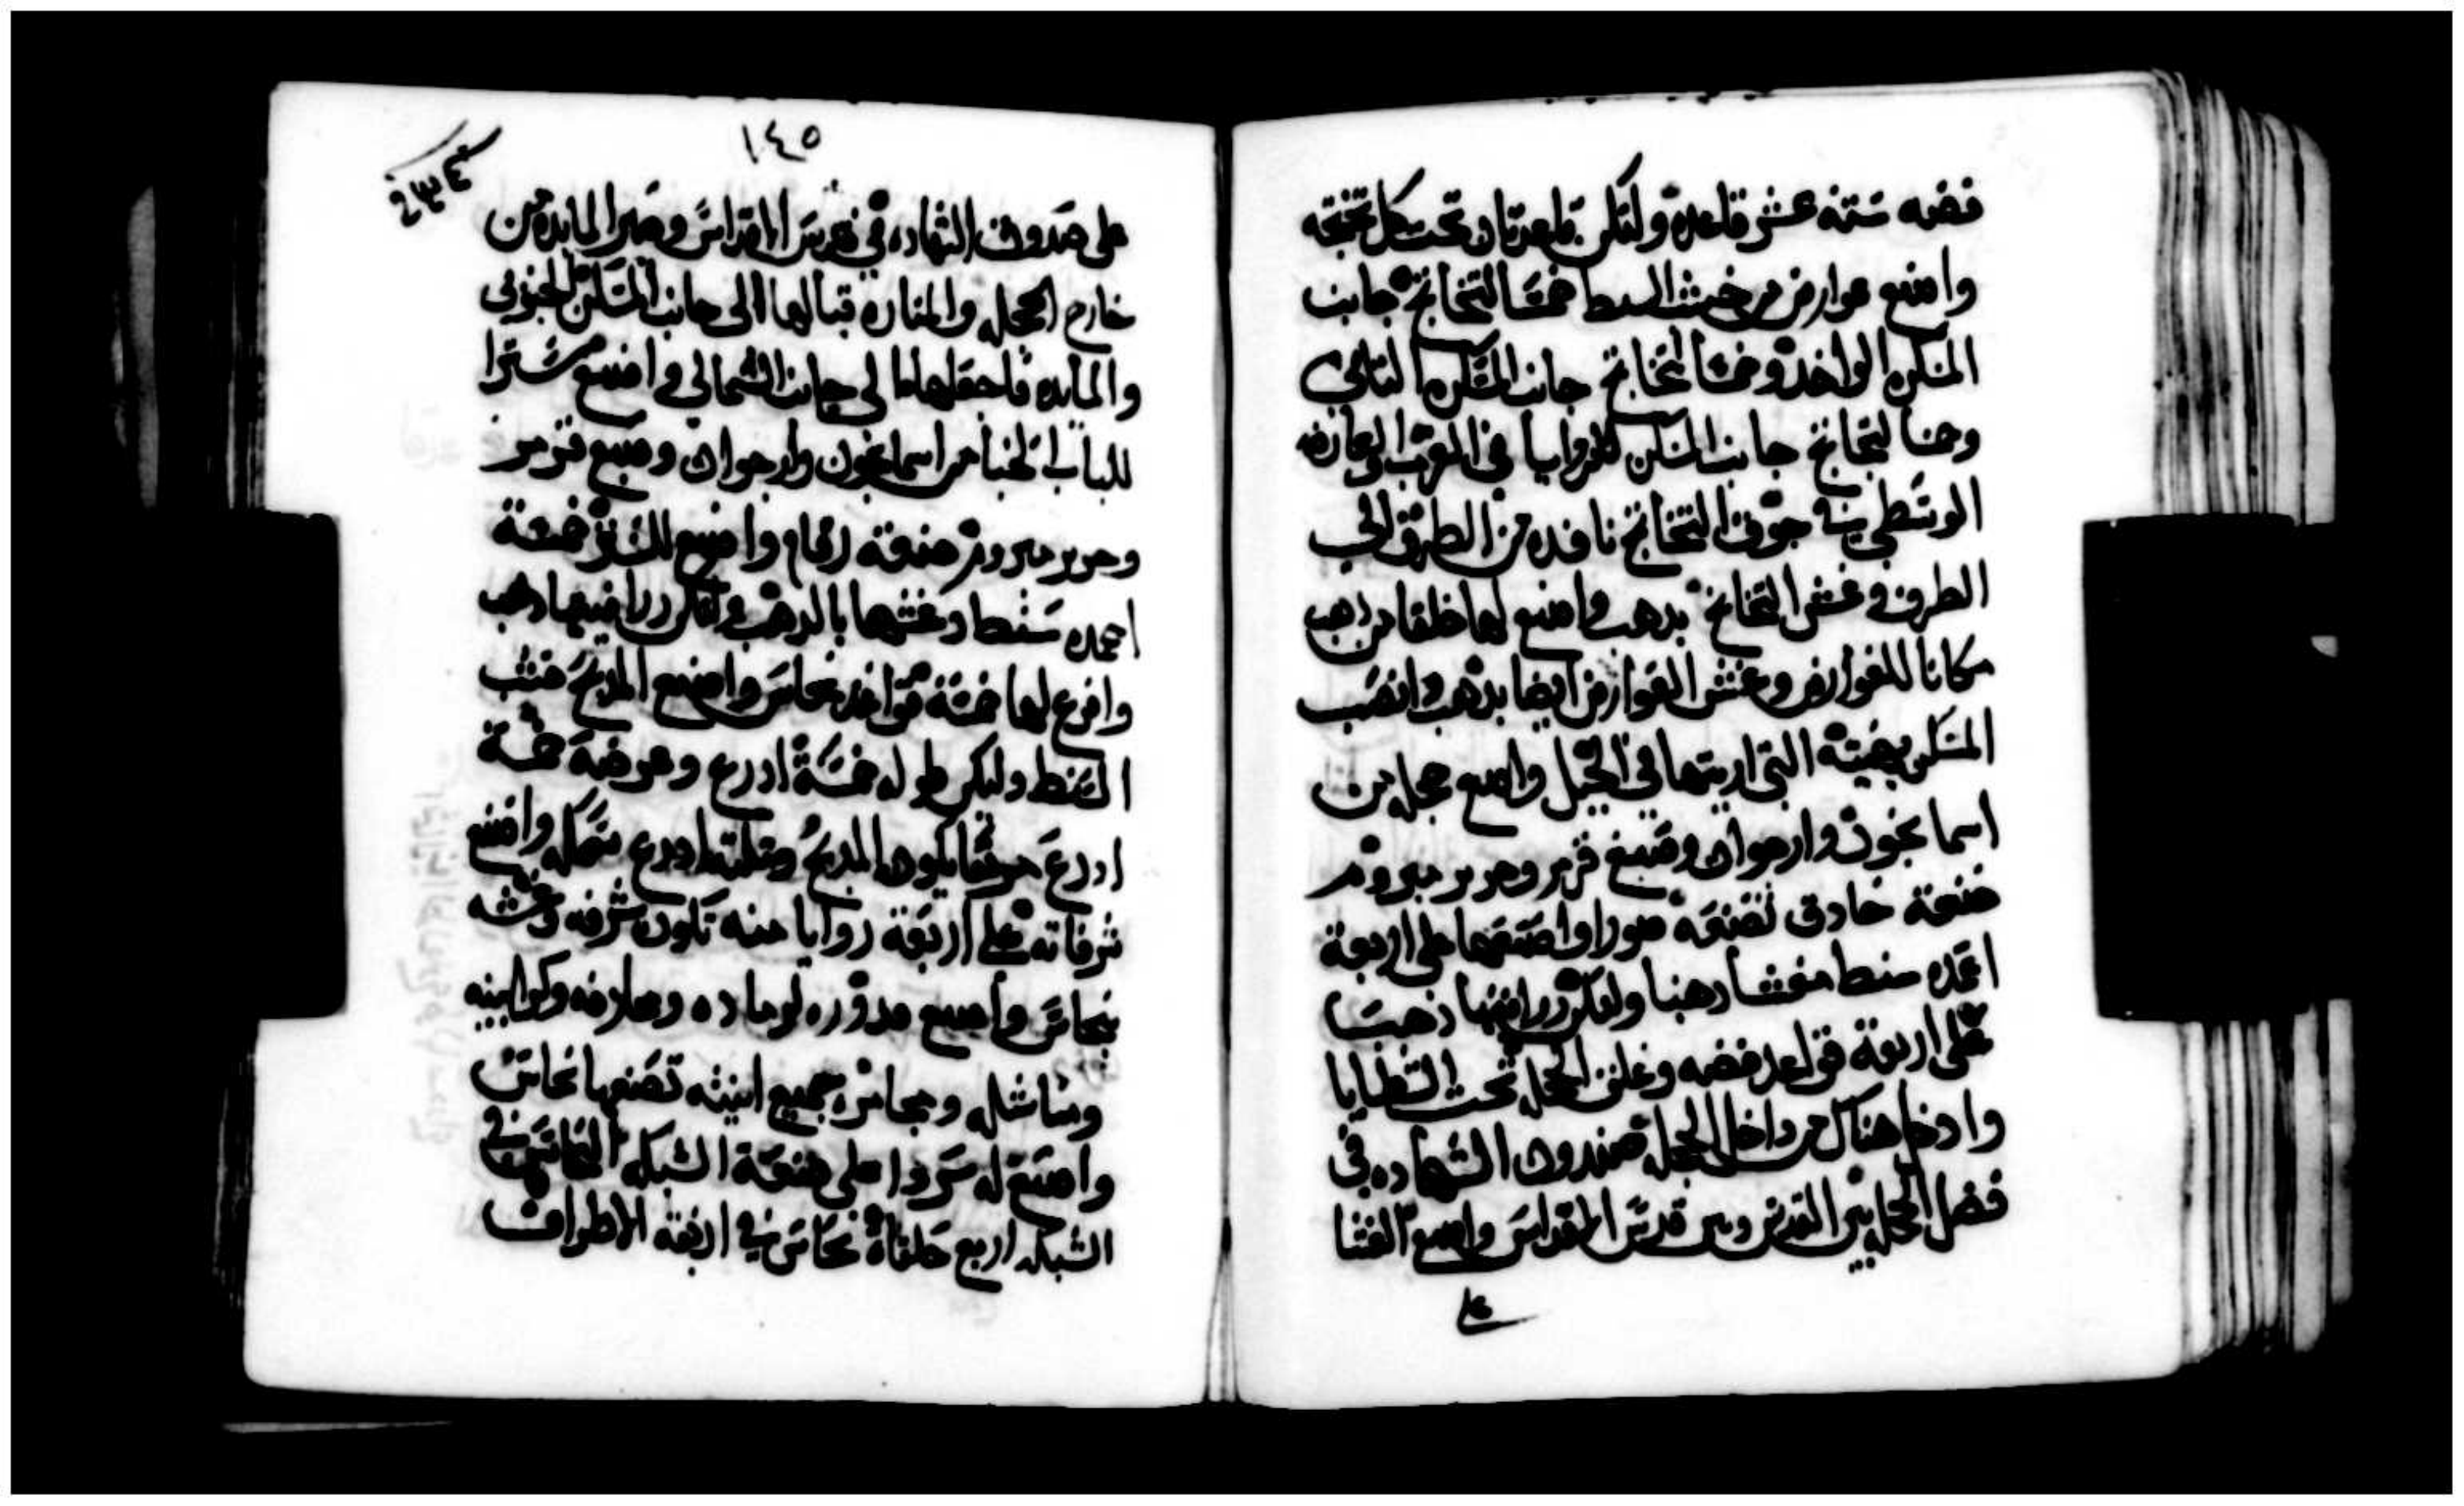 فضه سته عشر قاعدة ولتكن قاعدتان تحت كل تختجه
واصنع عوارض من خشب السنط خمسا لتخاتج جانب
المسكن الواحد وخمسا لتخاتج جانب المسكن الثاني
وخمسا لتخاتج جانب المسكن للزوايا في الغرب العارضه
الوسطى في جوف التخاتج نافده من الطرف الى
الطرف وغش التخاتج بدهب واصنع لها حلقا من دهب
مكانا للعوارض وغش العوارض ايضا بدهب وانصب
المسكن بهيئته التى اريتها في الجبل واصنع حجله من
اسمانجون وارجوان وصبغ قرمز وحرير مبروم
صنعة حادق تصنعه صورا واصنعها على اربعة
اعمده سنط مغشا دهبا ولتكن زرافينها دهبا
على اربعة قواعد فضه وعلق الحجله تحت الشظايا
وادخل هناك من داخل الحجله صندوق الشهاده في
فصل الحجله بين القدس وبين قدس الاقداس واصنع الغشا
على
١٤٥
٢٣٤
على صندوق الشهاده في قدس الاقداس وصير المايده من
خارج الحجله والمناره قبالها الى جانب المسكن الجنوبي
والمايده فاجعلها الى جانب الشمالي واصنع سترا
للباب الخبا من اسمانجون وارجوان وصبغ قرمز
وحرير مبروم صنعة رقام واصنع للستر خمسة
اعمده سنط وغشها بالدهب ولتكن زرافينها دهب
وافرغ لها خمسة قواعد نحاس واصنع المدبح خشب
السنط وليكن طوله خمسة ادرع وعرضه خمسة
ادرع مربعا يكون المدبح وثلثة ادرع سمكه واصنع
شرفاته على اربعة زوايا منه تكون شرفه وغشه
نحاس واصنع قدوره لرماده ومغارفه وكلاليبه
ومناشله ومجامره جميع انيته تصنعها نحاس
واصنع له سردا على صنعة الشبكه النحاس وفي
الشبكه اربع حلقاة نحاس في اربعة الاطراف